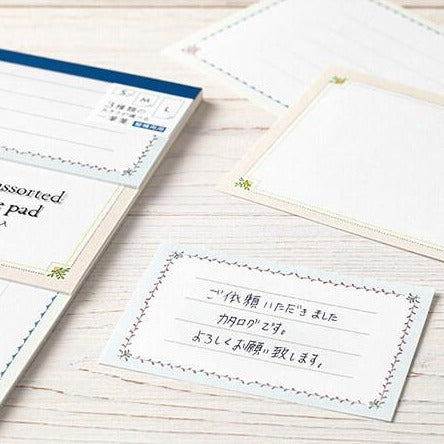 S M L
3種類の
一筆箋
assorted
pad
ご依頼いただきました
カタログです。
よろしくお願い致します。